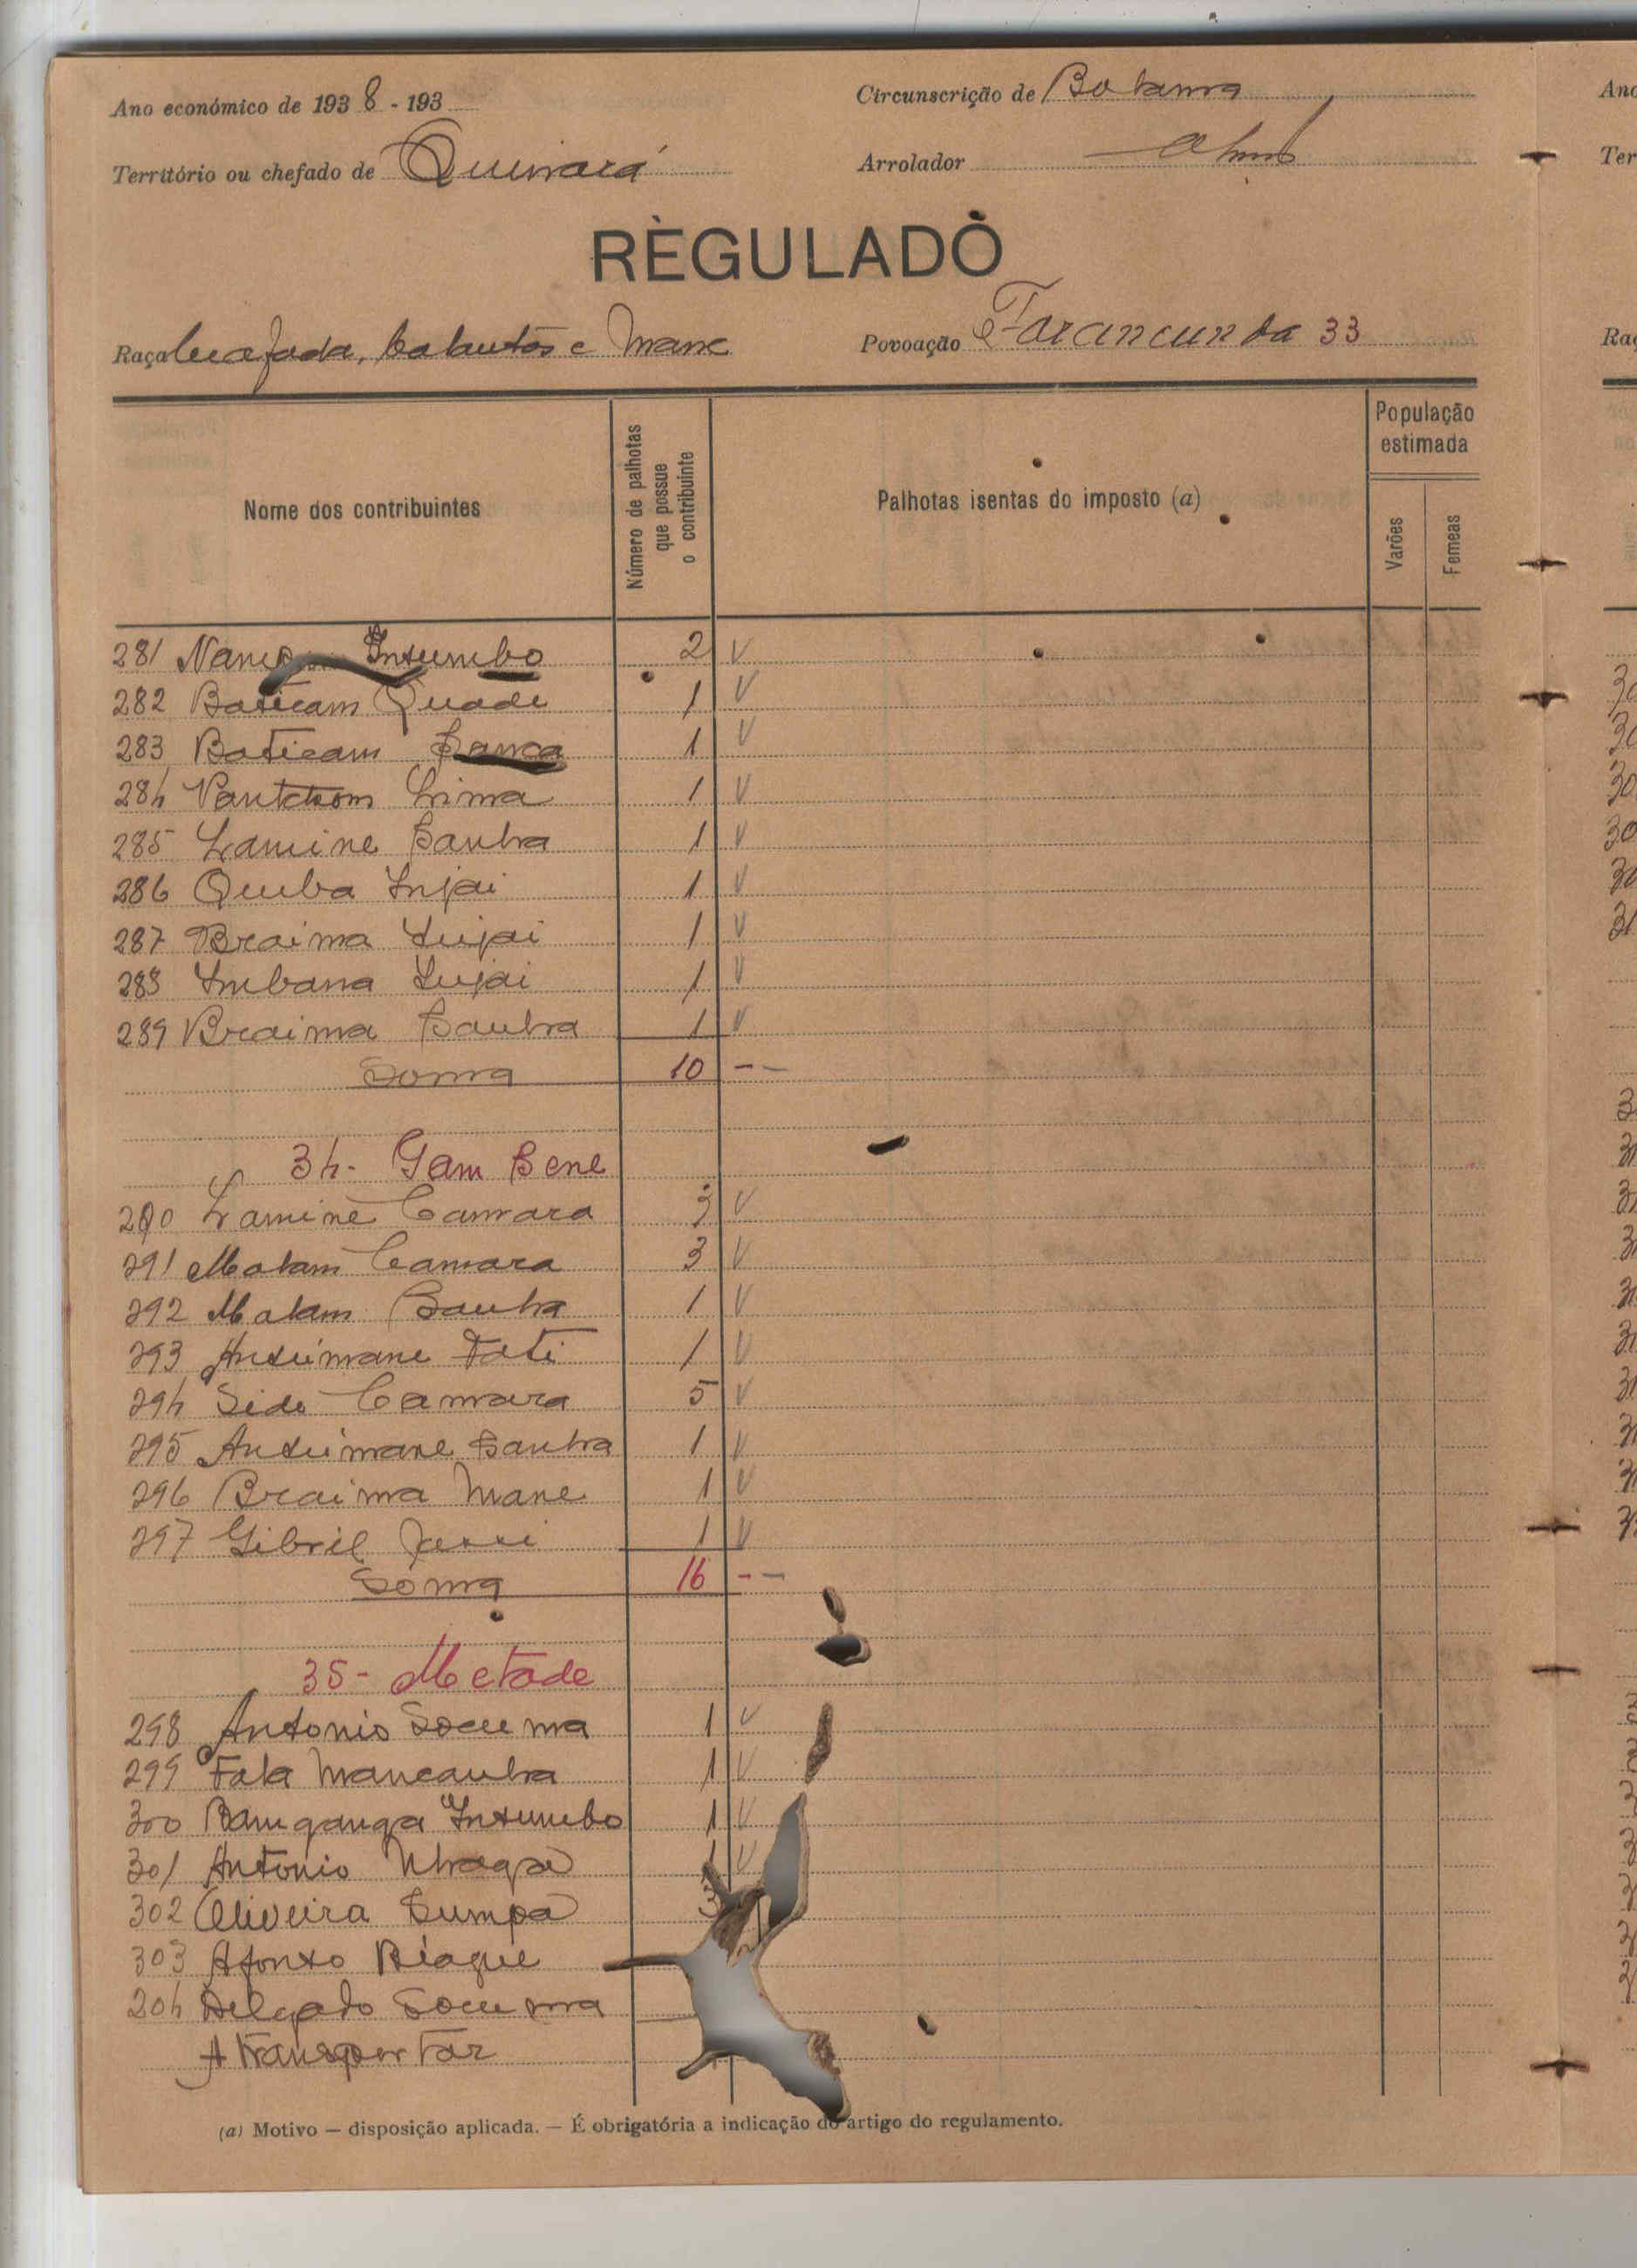 Ano económico de 193 8 - 193
Circunscrição de Bolama
Território ou chefado de Quinará
Arrolador
REGULADO
Raça beafada, balantas e Mane
Povoação Farancunda 33
Nome dos contribuintes
Número de palhotas que possue o contribuinte
Palhotas isentas do imposto (a)
População estimada
Varões
Femeas
281 Intumbo 2 V
282 Baticam Quade 1 V
283 Baticam Sanca 1 V
284 1 V
285 Lamine Sanha 1 V
286 Quiba Injai 1 V
287 Braima Injai 1 V
288 Imbana Injai 1 V
289 Braima Sanha 1 V
Soma 10 - -
34- Gam Sene
290 Lamine Camara 3 V
291 Malam Camara 3 V
292 Malam Sanha 1 V
293 Ansumane Fati 1 V
294 Sido Camara 5 V
295 Ansumane Sanha 1 V
296 Braima Mane 1 V
297 Gibril 1 V
Soma 16 - -
35- Metade
298 Antonio Socuma 1 V
299 Fala Mancanha 1 V
300 Bamganga Intumbo 1 V
301 Antonio 1 V
302 Oliveira Sumpa 3
303 Afonso Biague
304 Delgado Socuma
A transportar
(a) Motivo — disposição aplicada. — É obrigatória a indicação do artigo do regulamento.